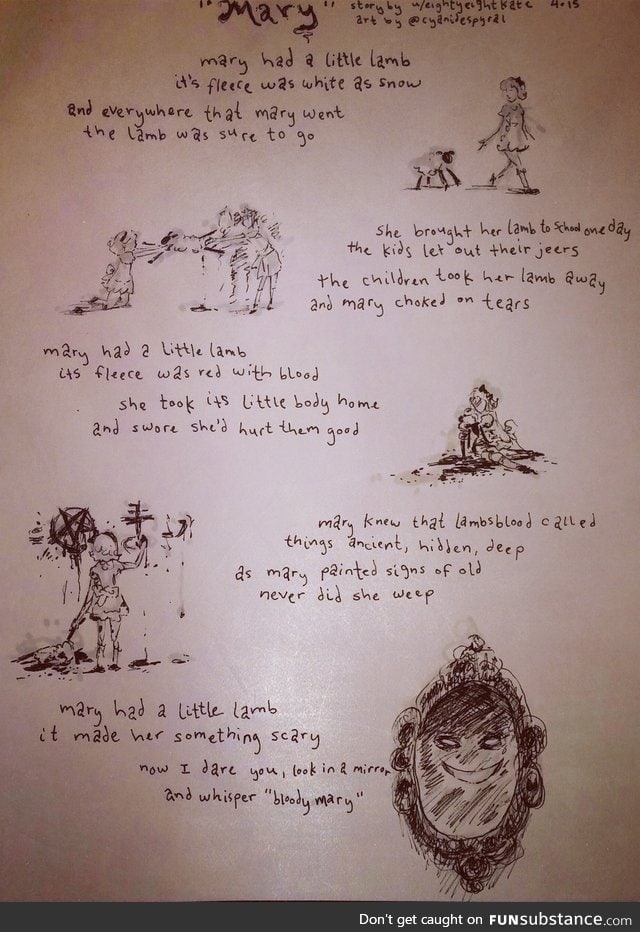 "Mary"
story by u/eightyeightkate 4·15
art by @cyanidespyral
mary had a little lamb
it's fleece was white as snow
and everywhere that mary went
the lamb was sure to go
she brought her lamb to school one day
the kids let out their jeers
the children took her lamb away
and mary choked on tears
mary had a little lamb
its fleece was red with blood
she took its little body home
and swore she'd hurt them good
mary knew that lambsblood called
things ancient, hidden, deep
as mary painted signs of old
never did she weep
mary had a little lamb
it made her something scary
now I dare you, look in a mirror
and whisper "bloody mary"
Don't get caught on FUNsubstance.com